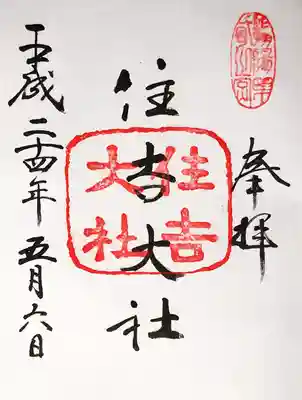 奉拝
住吉大社
住吉
大社
平成二十四年五月六日